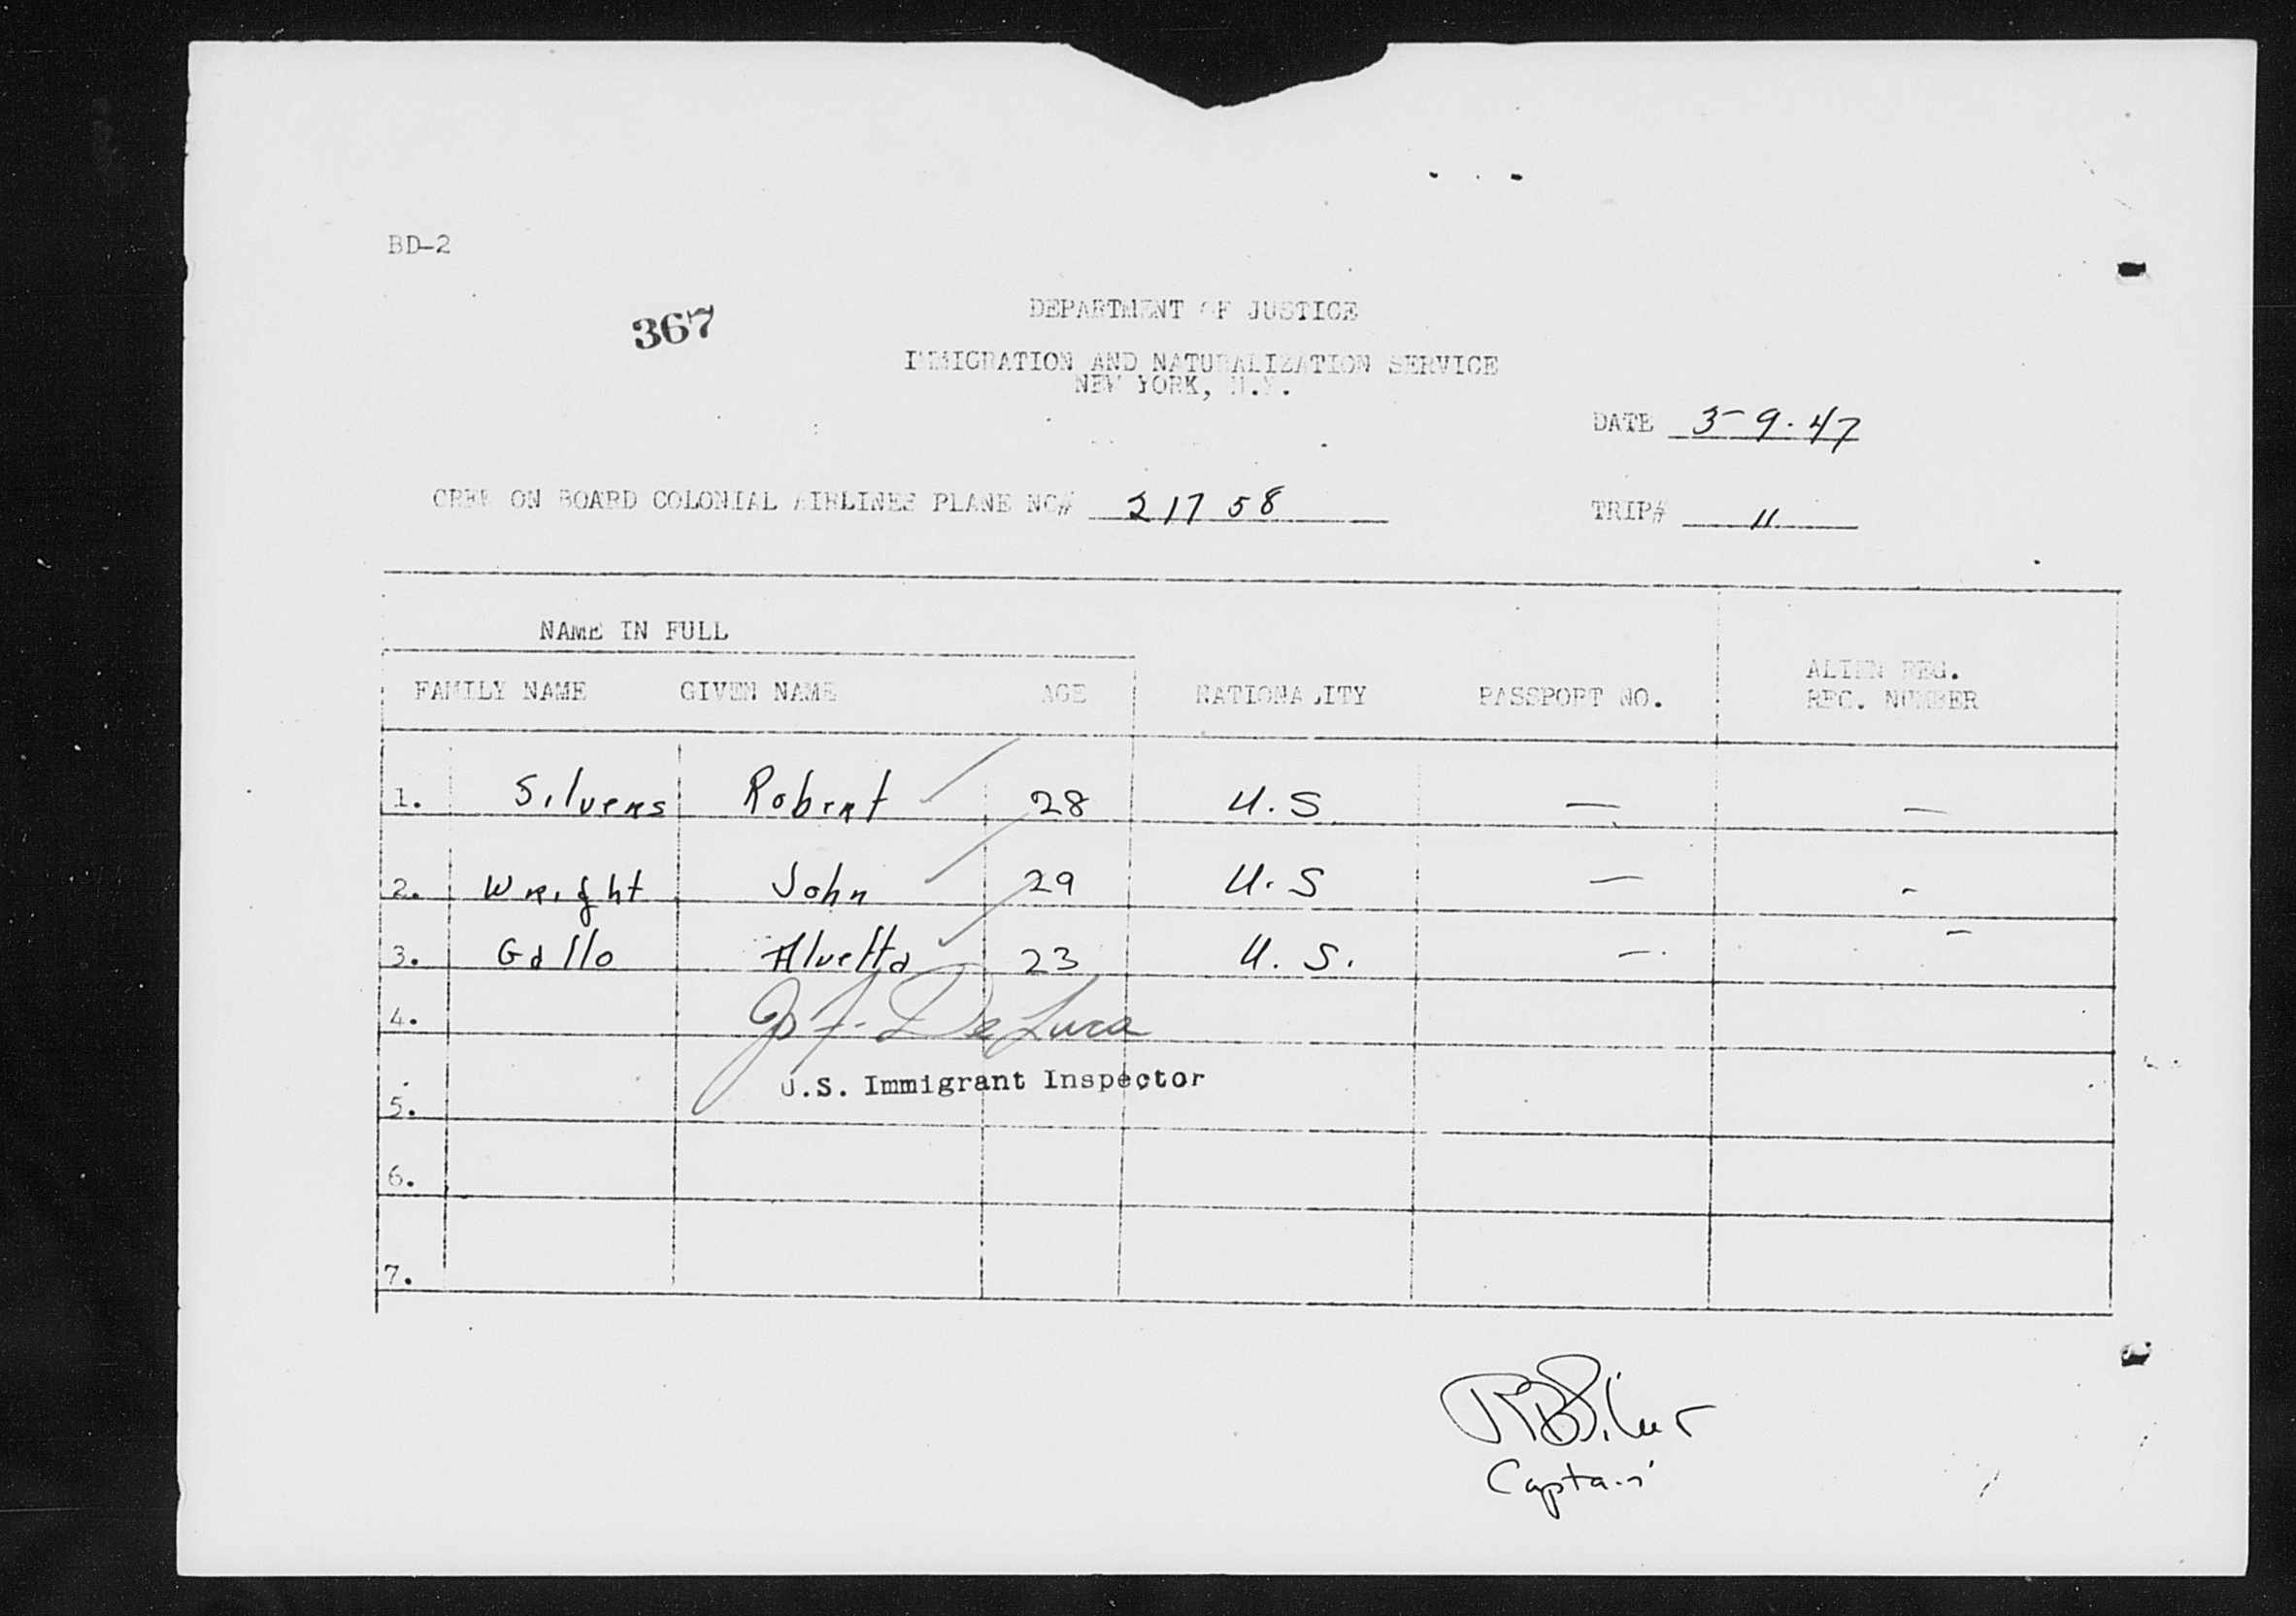 BD-2
367
DEPARTMENT OF JUSTICE
IMMIGRATION AND NATURALIZATION SERVICE
NEW YORK, N.Y.
DATE 3-9-47
CREW ON BOARD COLONIAL AIRLINES PLANE NO# 21758
TRIP# 11
NAME IN FULL
FAMILY NAME GIVEN NAME AGE NATIONALITY PASSPORT NO. ALIEN REG. REC. NUMBER
1. Silvers Robert 28 U.S — —
2. Wright John 29 U.S — -
3. Gallo Alvetta 23 U.S. — -
4. De Luca
U.S. Immigrant Inspector
5.
6.
7.
Captain